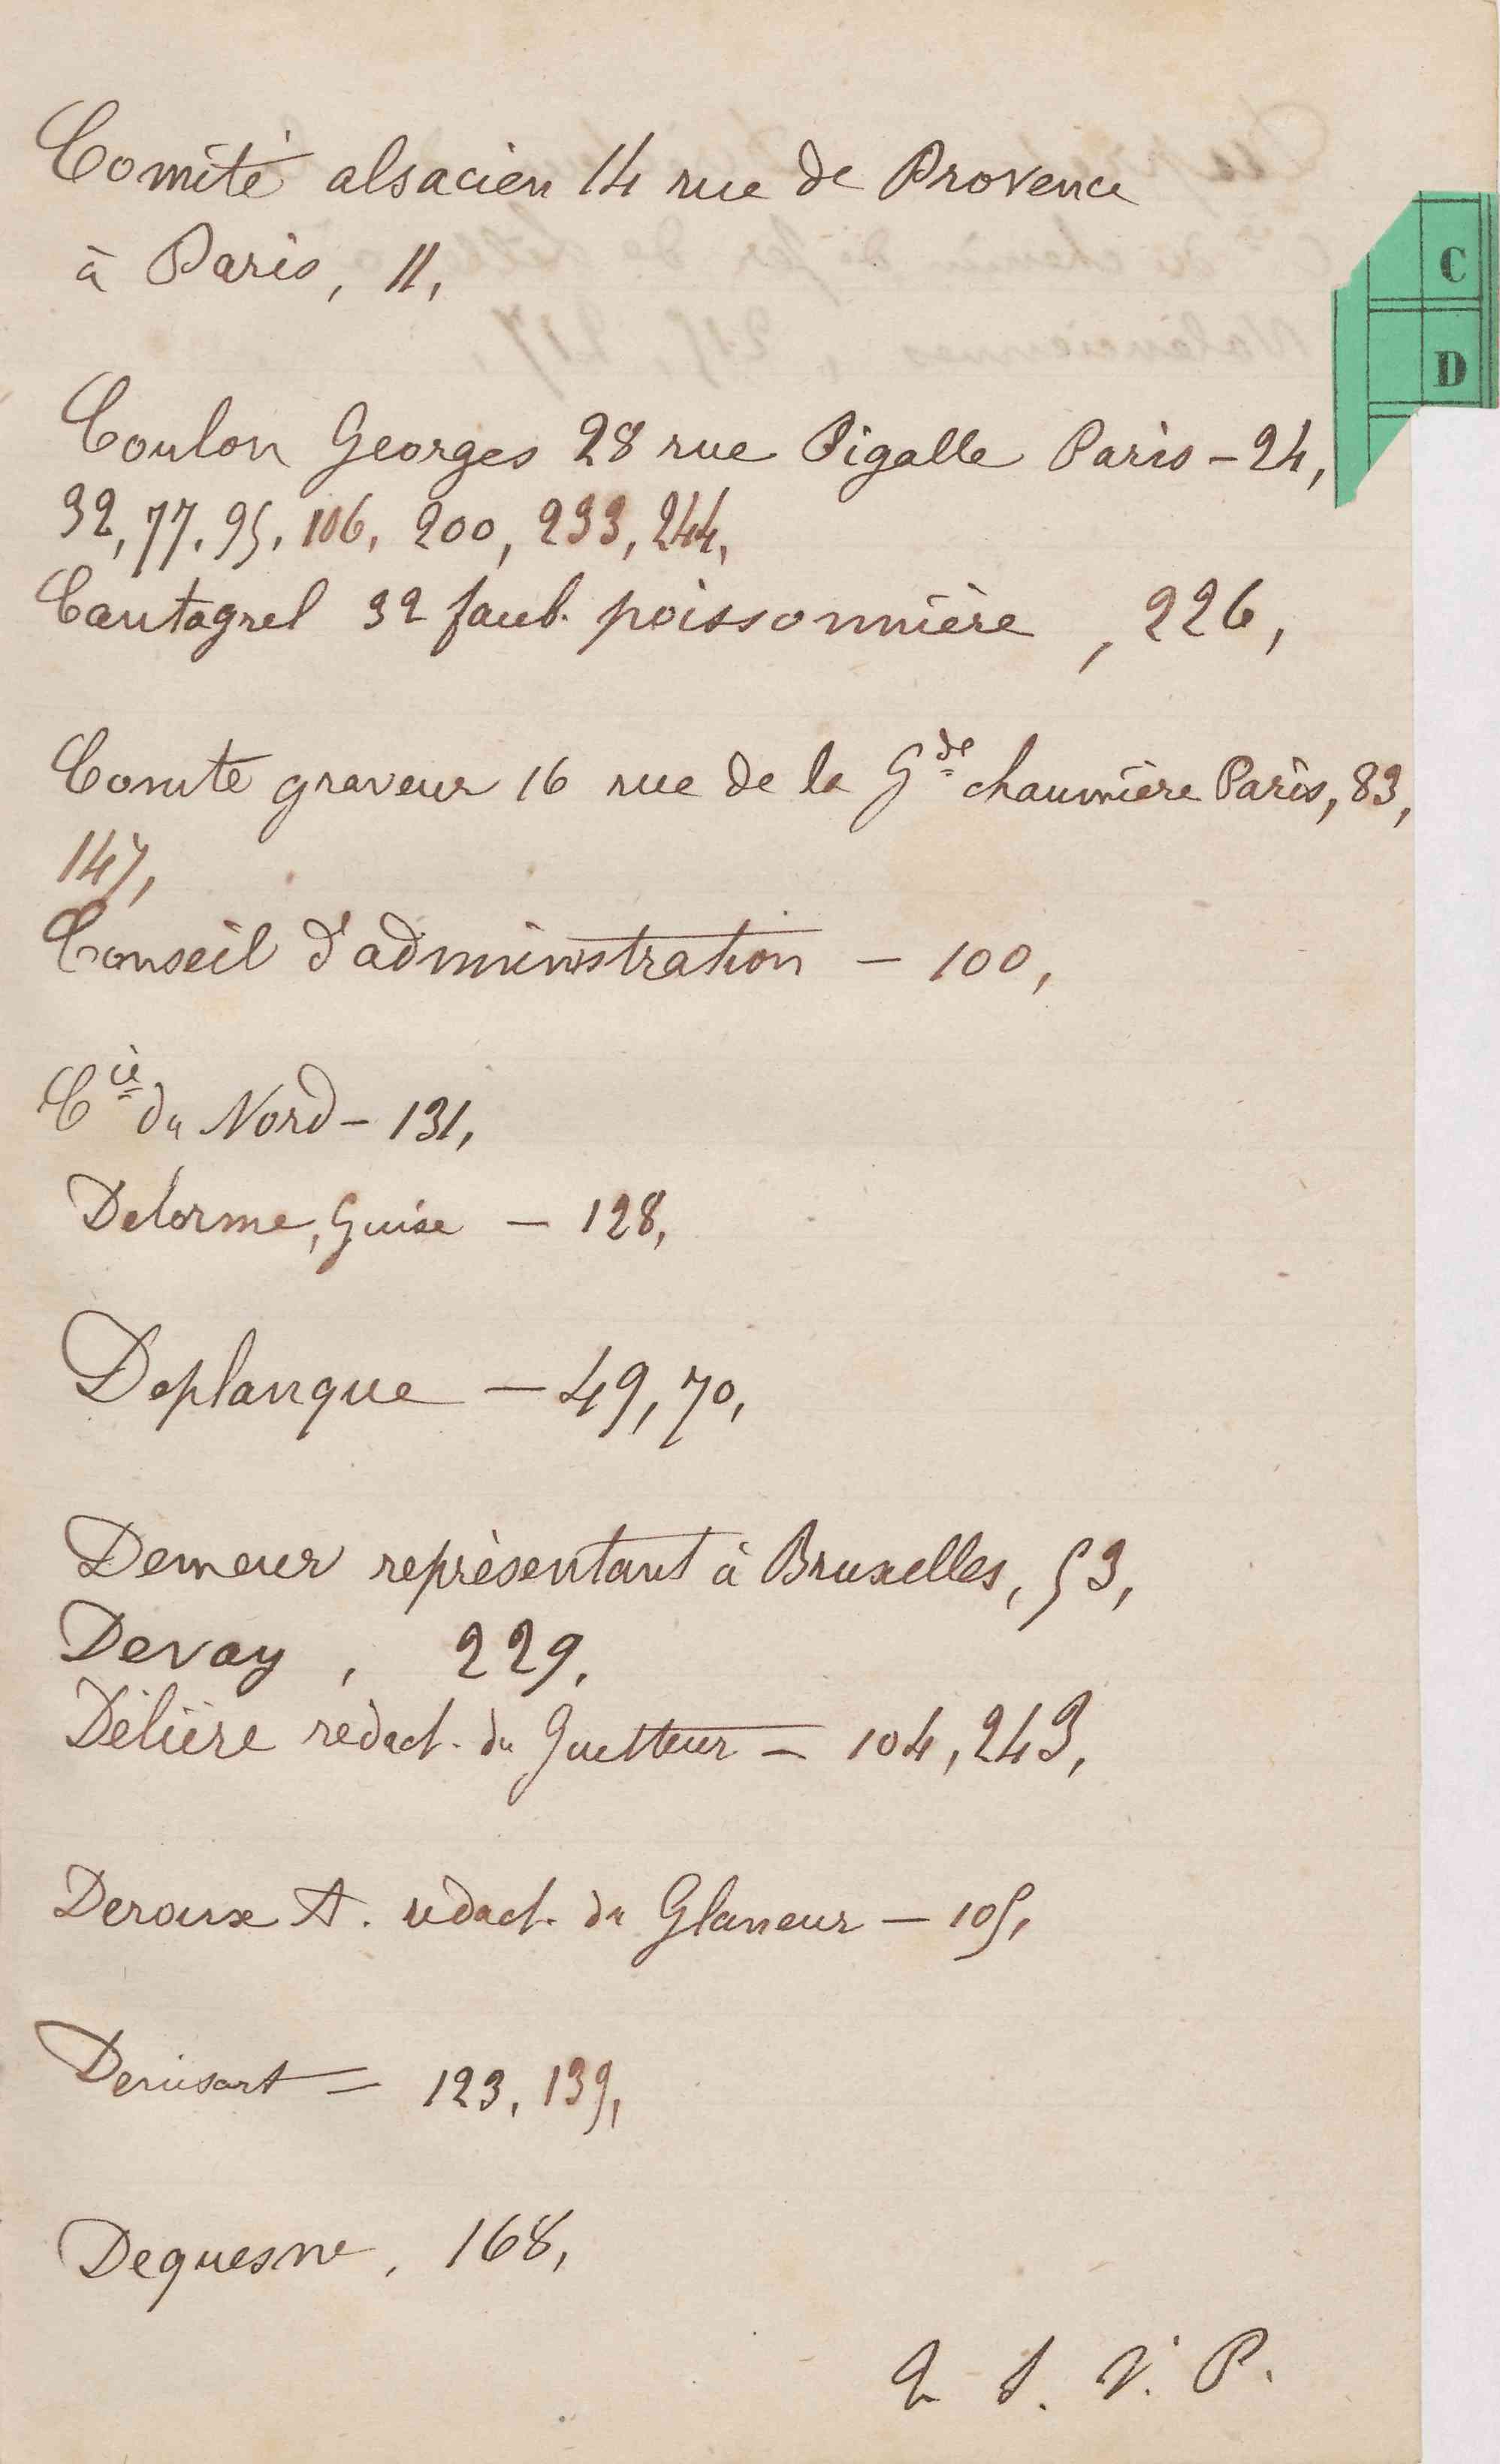 Comité alsacien 14 rue de Provence
à Paris, 11,
C
D
Coulon Georges 28 rue Pigalle Paris - 24,
32, 77, 95, 106, 200, 233, 244,
Cantagrel 32 faub. poissonnière, 226,
Comte graveur 16 rue de la Gde chaumière Paris, 83,
147,
Conseil d'administration - 100,
Cie du Nord - 131,
Delorme, Guise - 128,
Deplanque - 49, 70,
Demeur représentant à Bruxelles, 53,
Devay, 229,
Délière rédact. du Guetteur - 104, 243,
Deroux A. rédact. du Glaneur - 105,
Denisart = 123, 139,
Dequesne, 168,
T. S. V. P.